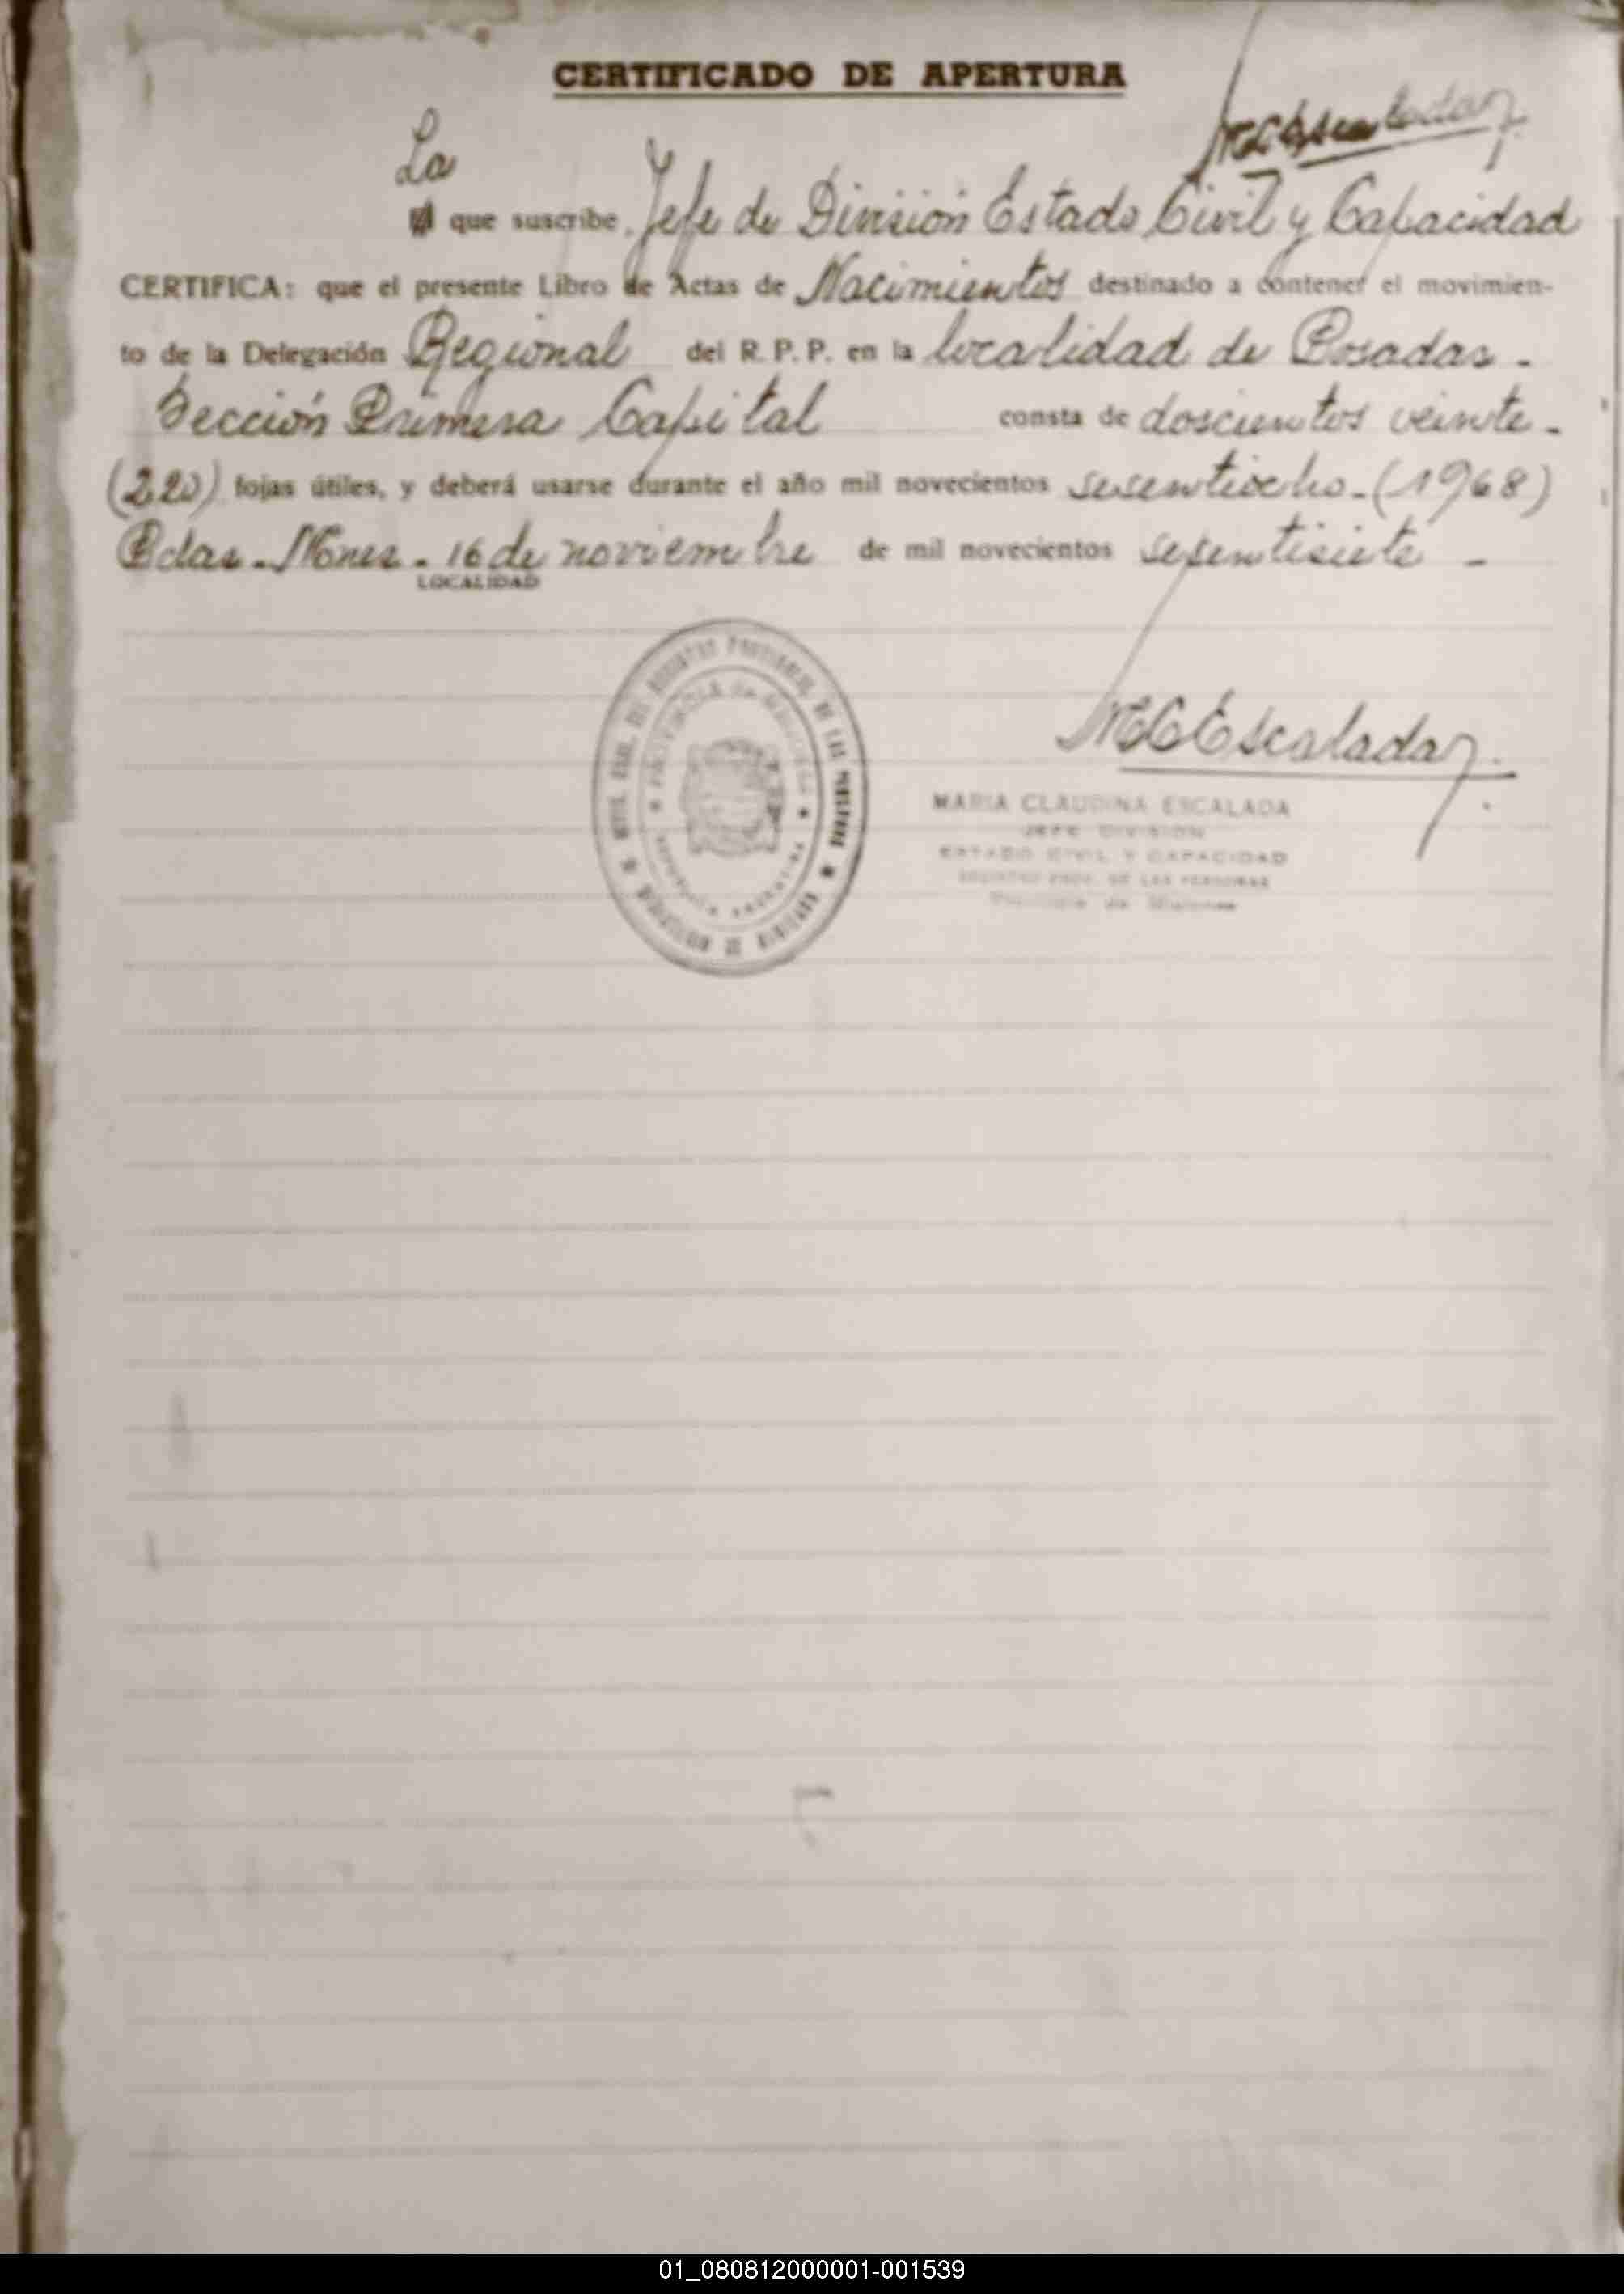 CERTIFICADO DE APERTURA
MCEscalada
La
El que suscribe, Jefe de División Estado Civil y Capacidad
CERTIFICA: que el presente Libro de Actas de Nacimientos destinado a contener el movimien-
to de la Delegación Regional del R. P. P. en la localidad de Posadas -
Sección Primera Capital consta de doscientos veinte -
(220) fojas útiles, y deberá usarse durante el año mil novecientos sesentiocho - (1968)
Pdas - Mnes - 16 de noviembre de mil novecientos sesentisiete -
LOCALIDAD
PROVINCIA de MISIONES
REPUBLICA ARGENTINA
MCEscalada
MARIA CLAUDINA ESCALADA
JEFE DIVISION
ESTADO CIVIL Y CAPACIDAD
REGISTRO PROV. DE LAS PERSONAS
Provincia de Misiones
01_080812000001-001539